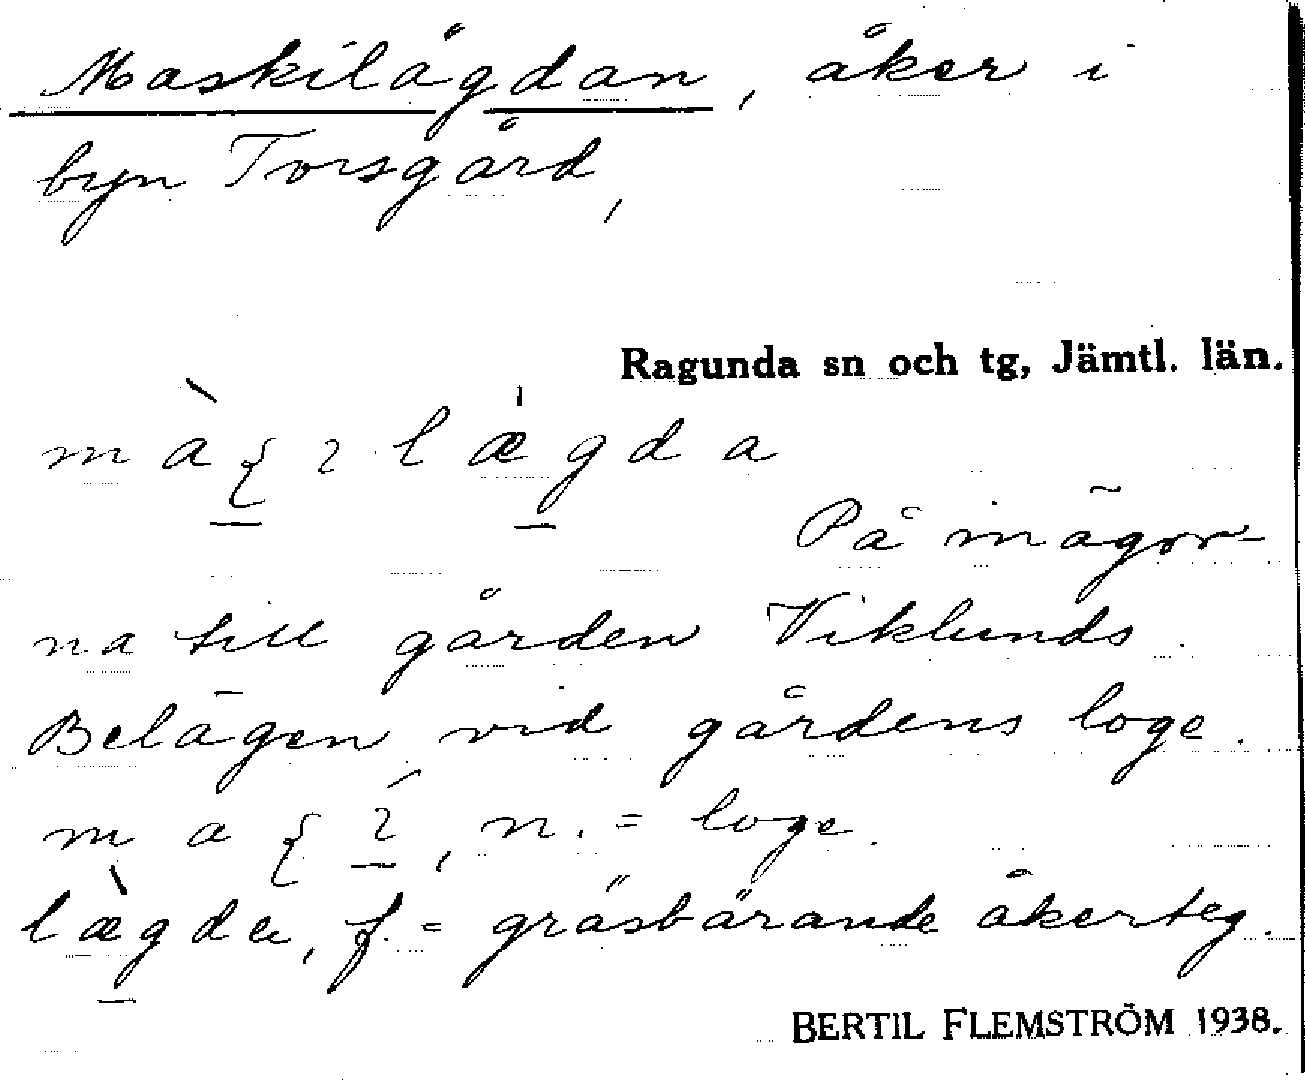 Maskilägdan, åker i
byn Torsgård,
Ragunda sn och tg, Jämtl. län.
lægda
På inägor-
na till gården Viklunds.
Belägen vid gårdens loge.
n. = loge.
lægda, f. = gräsbärande åkerteg.
BERTIL FLEMSTRÖM 1938.